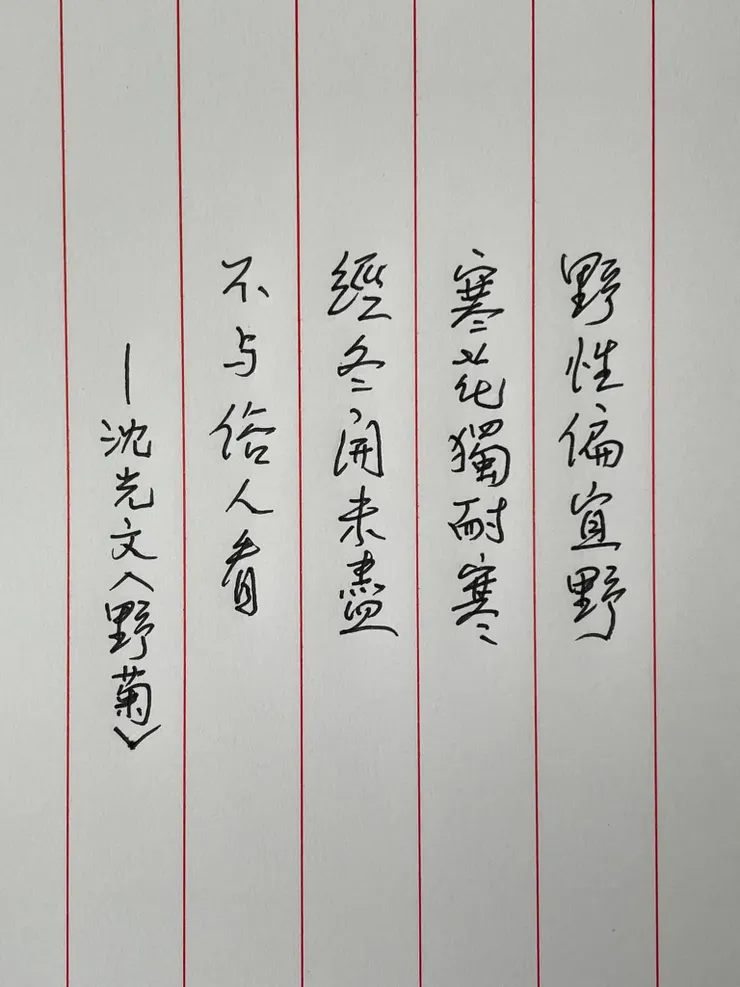 野性偏宜野
寒花獨耐寒
經冬開未盡
不与俗人看
—沈光文《野菊》